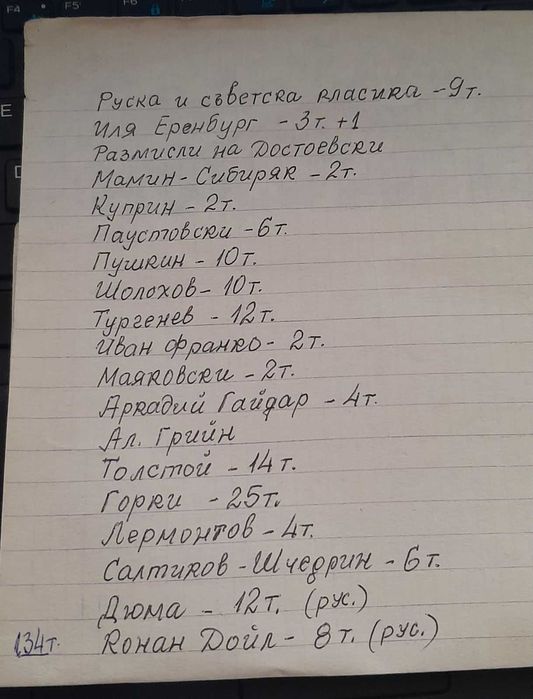 F4 F5 F6
E
Руска и съветска класика - 9 т.
Иля Еренбург - 3 т. + 1
Размисли на Достоевски
Мамин - Сибиряк - 2 т.
Куприн - 2 т.
Паустовски - 6 т.
Пушкин - 10 т.
Шолохов - 10 т.
Тургенев - 12 т.
Иван Франко - 2 т.
Маяковски - 2 т.
Аркадий Гайдар - 4 т.
Ал. Грийн
Толстой - 14 т.
Горки - 25 т.
Лермонтов - 4 т.
Салтиков - Шчедрин - 6 т.
Дюма - 12 т. (рус.)
134 т. Конан Дойл - 8 т. (рус.)